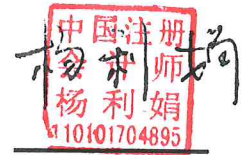 中国注册
会计师
杨利娟
110101704895
杨利娟